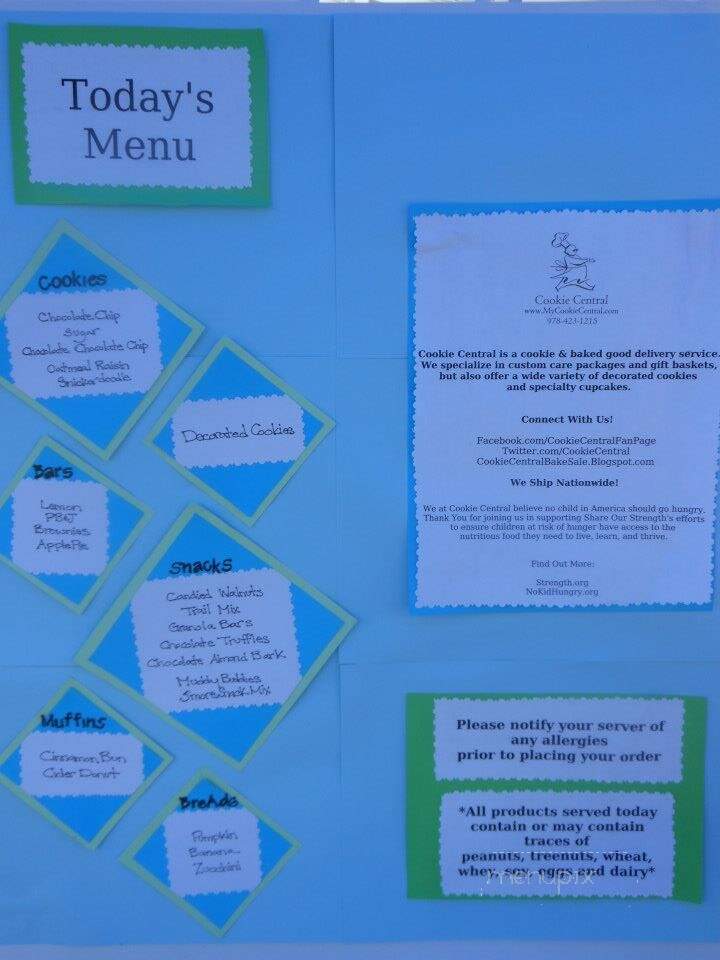 Today's
Menu
Cookies
Chocolate Chip
Sugar
Chocolate Chocolate Chip
Oatmeal Raisin
Snickerdoodle
Decorated Cookies
Bars
Lemon
PB&J
Brownies
Apple Pie
Snacks
Candied Walnuts
Trail Mix
Granola Bars
Chocolate Truffles
Chocolate Almond Bark
Muddy Buddies
Smore Snack Mix
Muffins
Cinnamon Bun
Cider Donut
BreAds
Pumpkin
Banana
Zucchini
Cookie Central
www.MyCookieCentral.com
978-423-1215
Cookie Central is a cookie & baked good delivery service.
We specialize in custom care packages and gift baskets,
but also offer a wide variety of decorated cookies
and specialty cupcakes.
Connect With Us!
Facebook.com/CookieCentralFanPage
Twitter.com/CookieCentral
CookieCentralBakeSale.Blogspot.com
We Ship Nationwide!
We at Cookie Central believe no child in America should go hungry.
Thank You for joining us in supporting Share Our Strength's efforts
to ensure children at risk of hunger have access to the
nutritious food they need to live, learn, and thrive.
Find Out More:
Strength.org
NoKidHungry.org
Please notify your server of
any allergies
prior to placing your order
*All products served today
contain or may contain
traces of
peanuts, treenuts, wheat,
whey, soy, eggs and dairy*
menupix